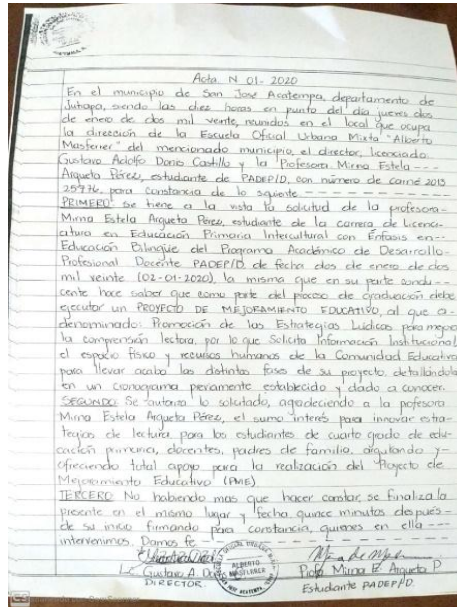 Acta N 01- 2020
En el municipio de San José Acatempa, departamento de
Jutiapa, siendo las diez horas en punto del día jueves dos
de enero de dos mil veinte, reunidos en el local que ocupa
la dirección de la Escuela Oficial Urbana Mixta "Alberto
Masferrer" del mencionado municipio, el director, licenciado
Gustavo Adolfo Donis Castillo y la Profesora Mirna Estela ---
Argueta Pérez, estudiante de PADEP/D, con número de carné 2015
25976, para constancia de lo siguiente - - - - - - - - - -
PRIMERO: se tiene a la vista la solicitud de la profesora-
Mirna Estela Argueta Pérez, estudiante de la carrera de Licenci-
atura en Educación Primaria Intercultural con Énfasis en--
Educación Bilingüe del Programa Académico de Desarrollo-
Profesional Docente PADEP/D, de fecha dos de enero de dos
mil veinte (02-01-2020), la misma que en su parte condu--
cente hace saber que como parte del proceso de graduación debe
ejecutar un PROYECTO DE MEJORAMIENTO EDUCATIVO, al que a-
denominado: Promoción de las Estrategias Lúdicas para mejorar
la comprensión lectora, por lo que Solicita Información Institucional,
el espacio físico y recursos humanos de la Comunidad Educativa
para llevar acabo las distintas fases de su proyecto, detallándola
en un cronograma periamente establecido y dado a conocer.
SEGUNDO: Se autoriza lo solicitado, agradeciendo a la pofesora
Mirna Estela Argueta Pérez, el sumo interés para innovar estra-
tegias de lectura para los estudiantes de cuarto grado de edu-
cación primaria, docentes, padres de familia, y-
ofreciendo total apoyo para la realización del Proyecto de
Mejoramiento Educativo (PME)
TERCERO: No habiendo mas que hacer constar, se finaliza la
presente en el mismo lugar y fecha quince minutos después-
de su inicio firmando para constancia, quienes en ella ---
intervenimos. Damos fe - - - - - - - - - -
Lic. Gustavo A. Do
DIRECTOR.
ALBERTO
MASFERRER
Profa Mirna E. Argueta P
Estudiante PADEP/D.